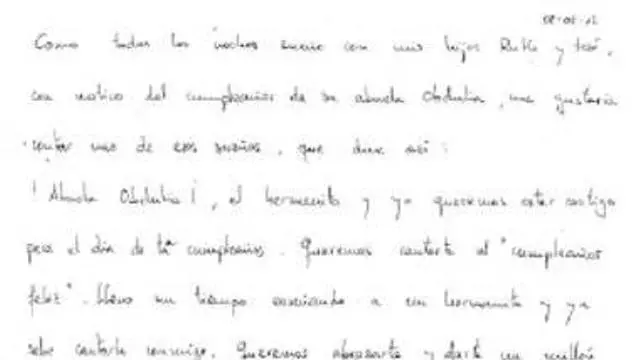 08-05-12
Como todas las noches sueño con mis hijos Ruth y José,
con motivo del cumpleaños de su abuela Obdulia, me gustaria
contar uno de esos sueños, que dice así:
¡Abuela Obdulia!, el hermanito y yo queremos estar contigo
para el día de tu cumpleaños. Queremos cantarte el "cumpleaños
feliz". Llevo un tiempo enseñando a mi hermanito y ya
sabe cantarla conmigo. Queremos abrazarte y darte un